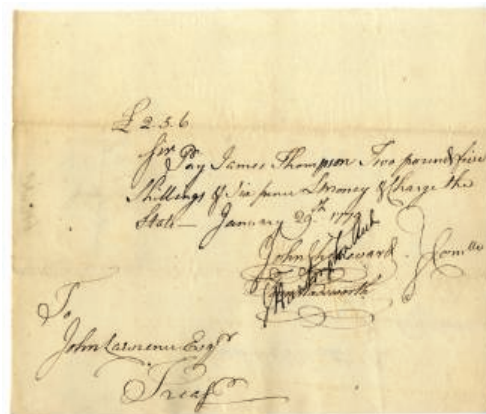 £ 2.5.6
Sir Pay James Thompson Two pound & five
Shillings & Six pence Lmoney & Charge the
State — January 29th 1779
John Chenevard
Wadsworth
Comtte
To
John Lawrence Esqr
Treasr